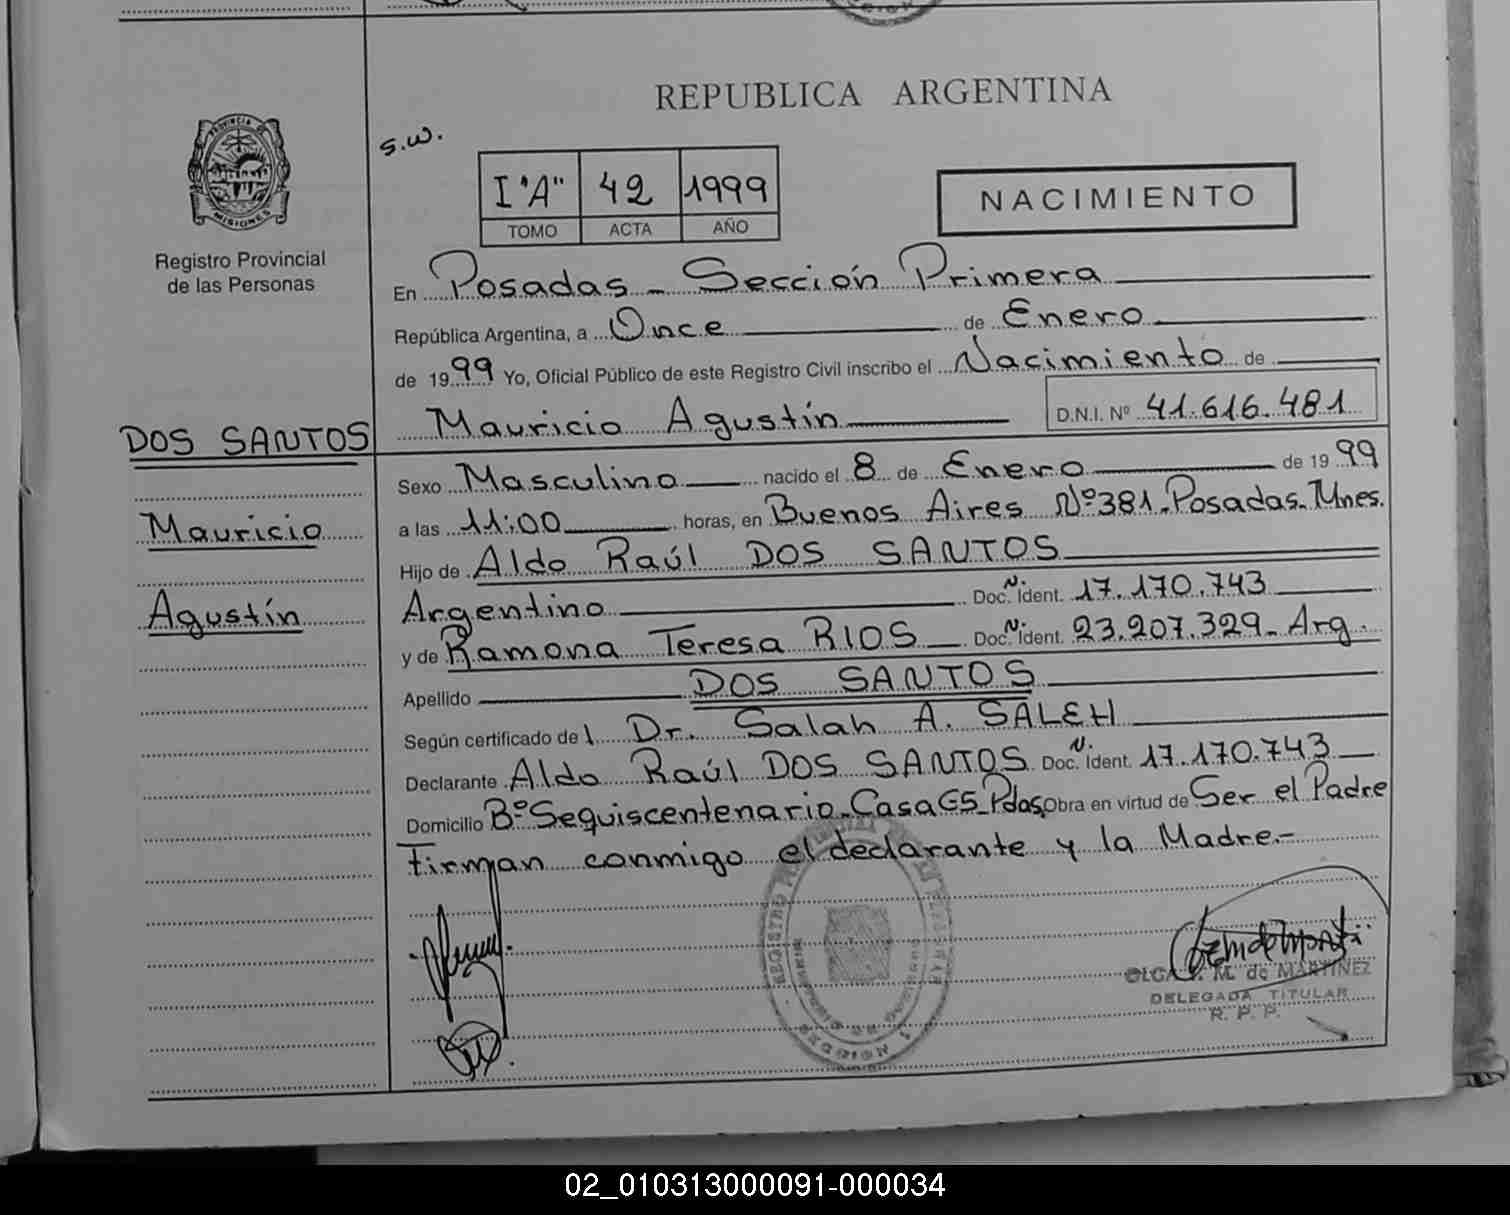 REPUBLICA ARGENTINA
PROVINCIA DE
MISIONES
Registro Provincial
de las Personas
S.W.
I "A" 42 1999
TOMO ACTA AÑO
NACIMIENTO
En Posadas - Sección Primera
República Argentina, a Once de Enero
de 1999 Yo, Oficial Público de este Registro Civil inscribo el Nacimiento de
Mauricio Agustín D.N.I. Nº 41.616.481
DOS SANTOS
Mauricio
Agustín
Sexo Masculino nacido el 8 de Enero de 1999
a las 11:00 horas, en Buenos Aires Nº 381. Posadas. Mnes.
Hijo de Aldo Raúl DOS SANTOS
Argentino Doc. N. Ident. 17.170.743
y de Ramona Teresa RIOS Doc. N. Ident. 23.207.329- Arg.
Apellido DOS SANTOS
Según certificado del Dr. Salah A. SALEH
Declarante Aldo Raúl DOS SANTOS Doc. N. Ident. 17.170.743
Domicilio Bº Sequiscentenario. Casa 65 Pdas. Obra en virtud de Ser el Padre
Firman conmigo el declarante y la Madre.-
M. de MARTINEZ
DELEGADA TITULAR
R. P. P.
02_010313000091-000034